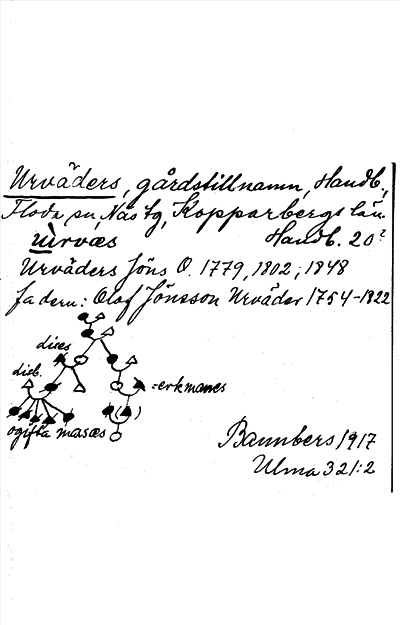 Urväders, gårdstillnamn, Handb.,
Floda sn, Nås tg, Kopparbergs län.
ùrvæs Handb. 20?
Urväders Jöns O. 1779, 1802, 1848
fadern: Olof Jönsson Urväder 1754-1822
dises
disb.
=erkmanes
( )
ogifta masæs
Bannbers 1917
Ulma 321:2